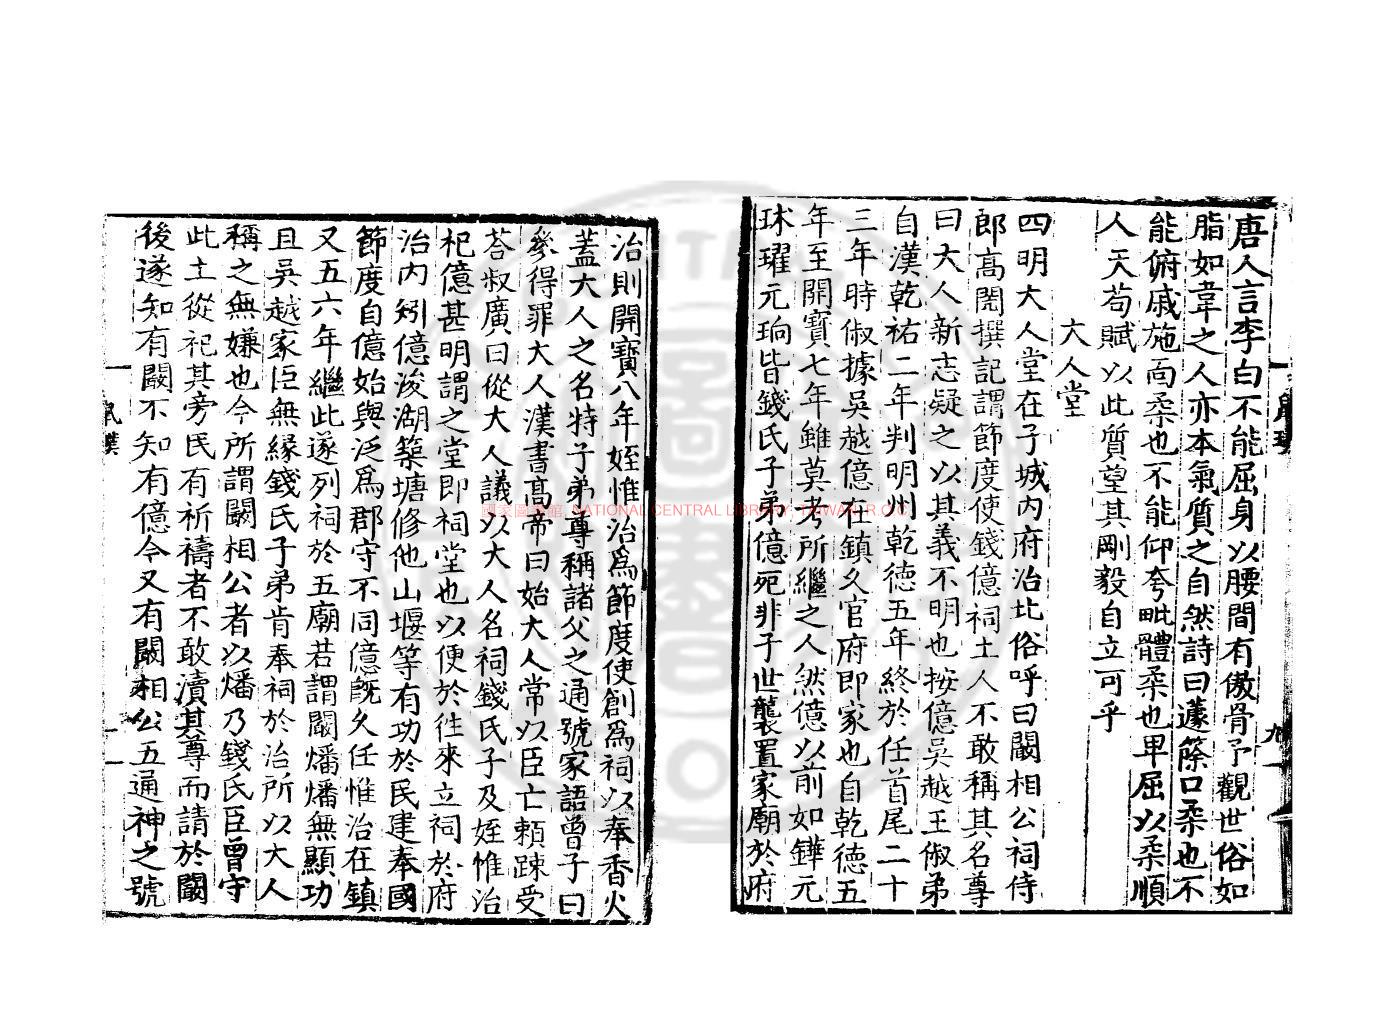 唐人言李白不能屈身以腰間有傲骨予觀世俗如
脂如韋之人亦本氣質之自然詩曰蘧篨口柔也不
能俯戚施面柔也不能仰夸毗體柔也卑屈以柔順
人天苟賦以此質望其剛毅自立可乎
大人堂
四明大人堂在子城内府治比俗呼曰闞相公祠侍
郎高閌撰記謂節度使錢億祠土人不敢稱其名尊
曰大人新志疑之以其義不明也按億吳越王俶弟
自漢乾祐二年判明州乾德五年終於任首尾二十
三年時俶據吳越億在鎮久官府即家也自乾德五
年至開寶七年雖莫考所繼之人然億以前如鏵元
球㻶元珦皆錢氏子弟億死非子世襲置家廟於府
治則開寶八年姪惟治爲節度使創爲祠以奉香火
蓋大人之名特子弟尊稱諸父之通號家語曾子曰
參得罪大人漢書高帝曰始大人常以臣亡賴踈受
荅叔廣曰從大人議以大人名祠錢氏子及姪惟治
祀億甚明謂之堂即祠堂也以便於徃來立祠於府
治内矧億浚湖築塘修他山堰等有功於民建奉國
節度自億始與泛爲郡守不同億旣久任惟治在鎮
又五六年繼此遂列祠於五廟若謂闞燔燔無顯功
且吳越家臣無緣錢氏子弟肯奉祠於治所以大人
稱之無嫌也今所謂闞相公者以燔乃錢氏臣曾守
此土從祀其旁民有祈禱者不敢瀆其尊而請於闞
後遂知有闞不知有億今又有闞相公五通神之號
國家圖書館 NATIONAL CENTRAL LIBRARY, TAIWAN, R.O.C.